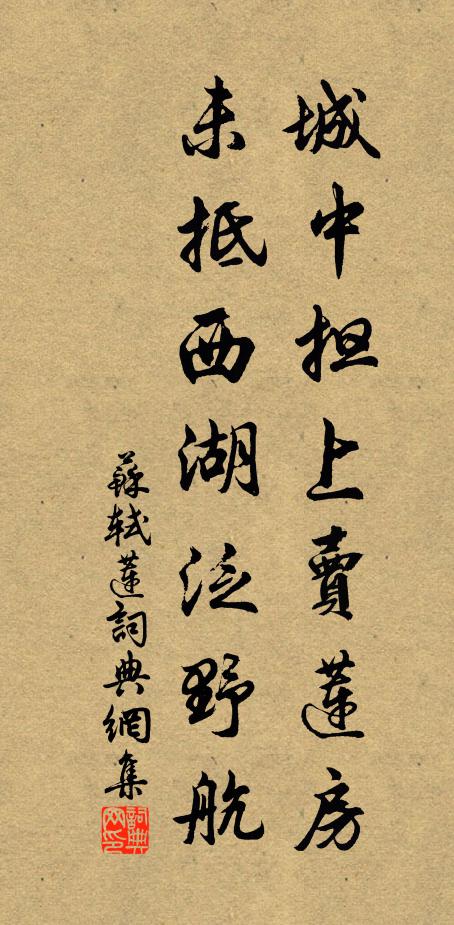 城中担上賣蓮房
未抵西湖泛野航
蘇軾蓮詞典網集
詞典网印